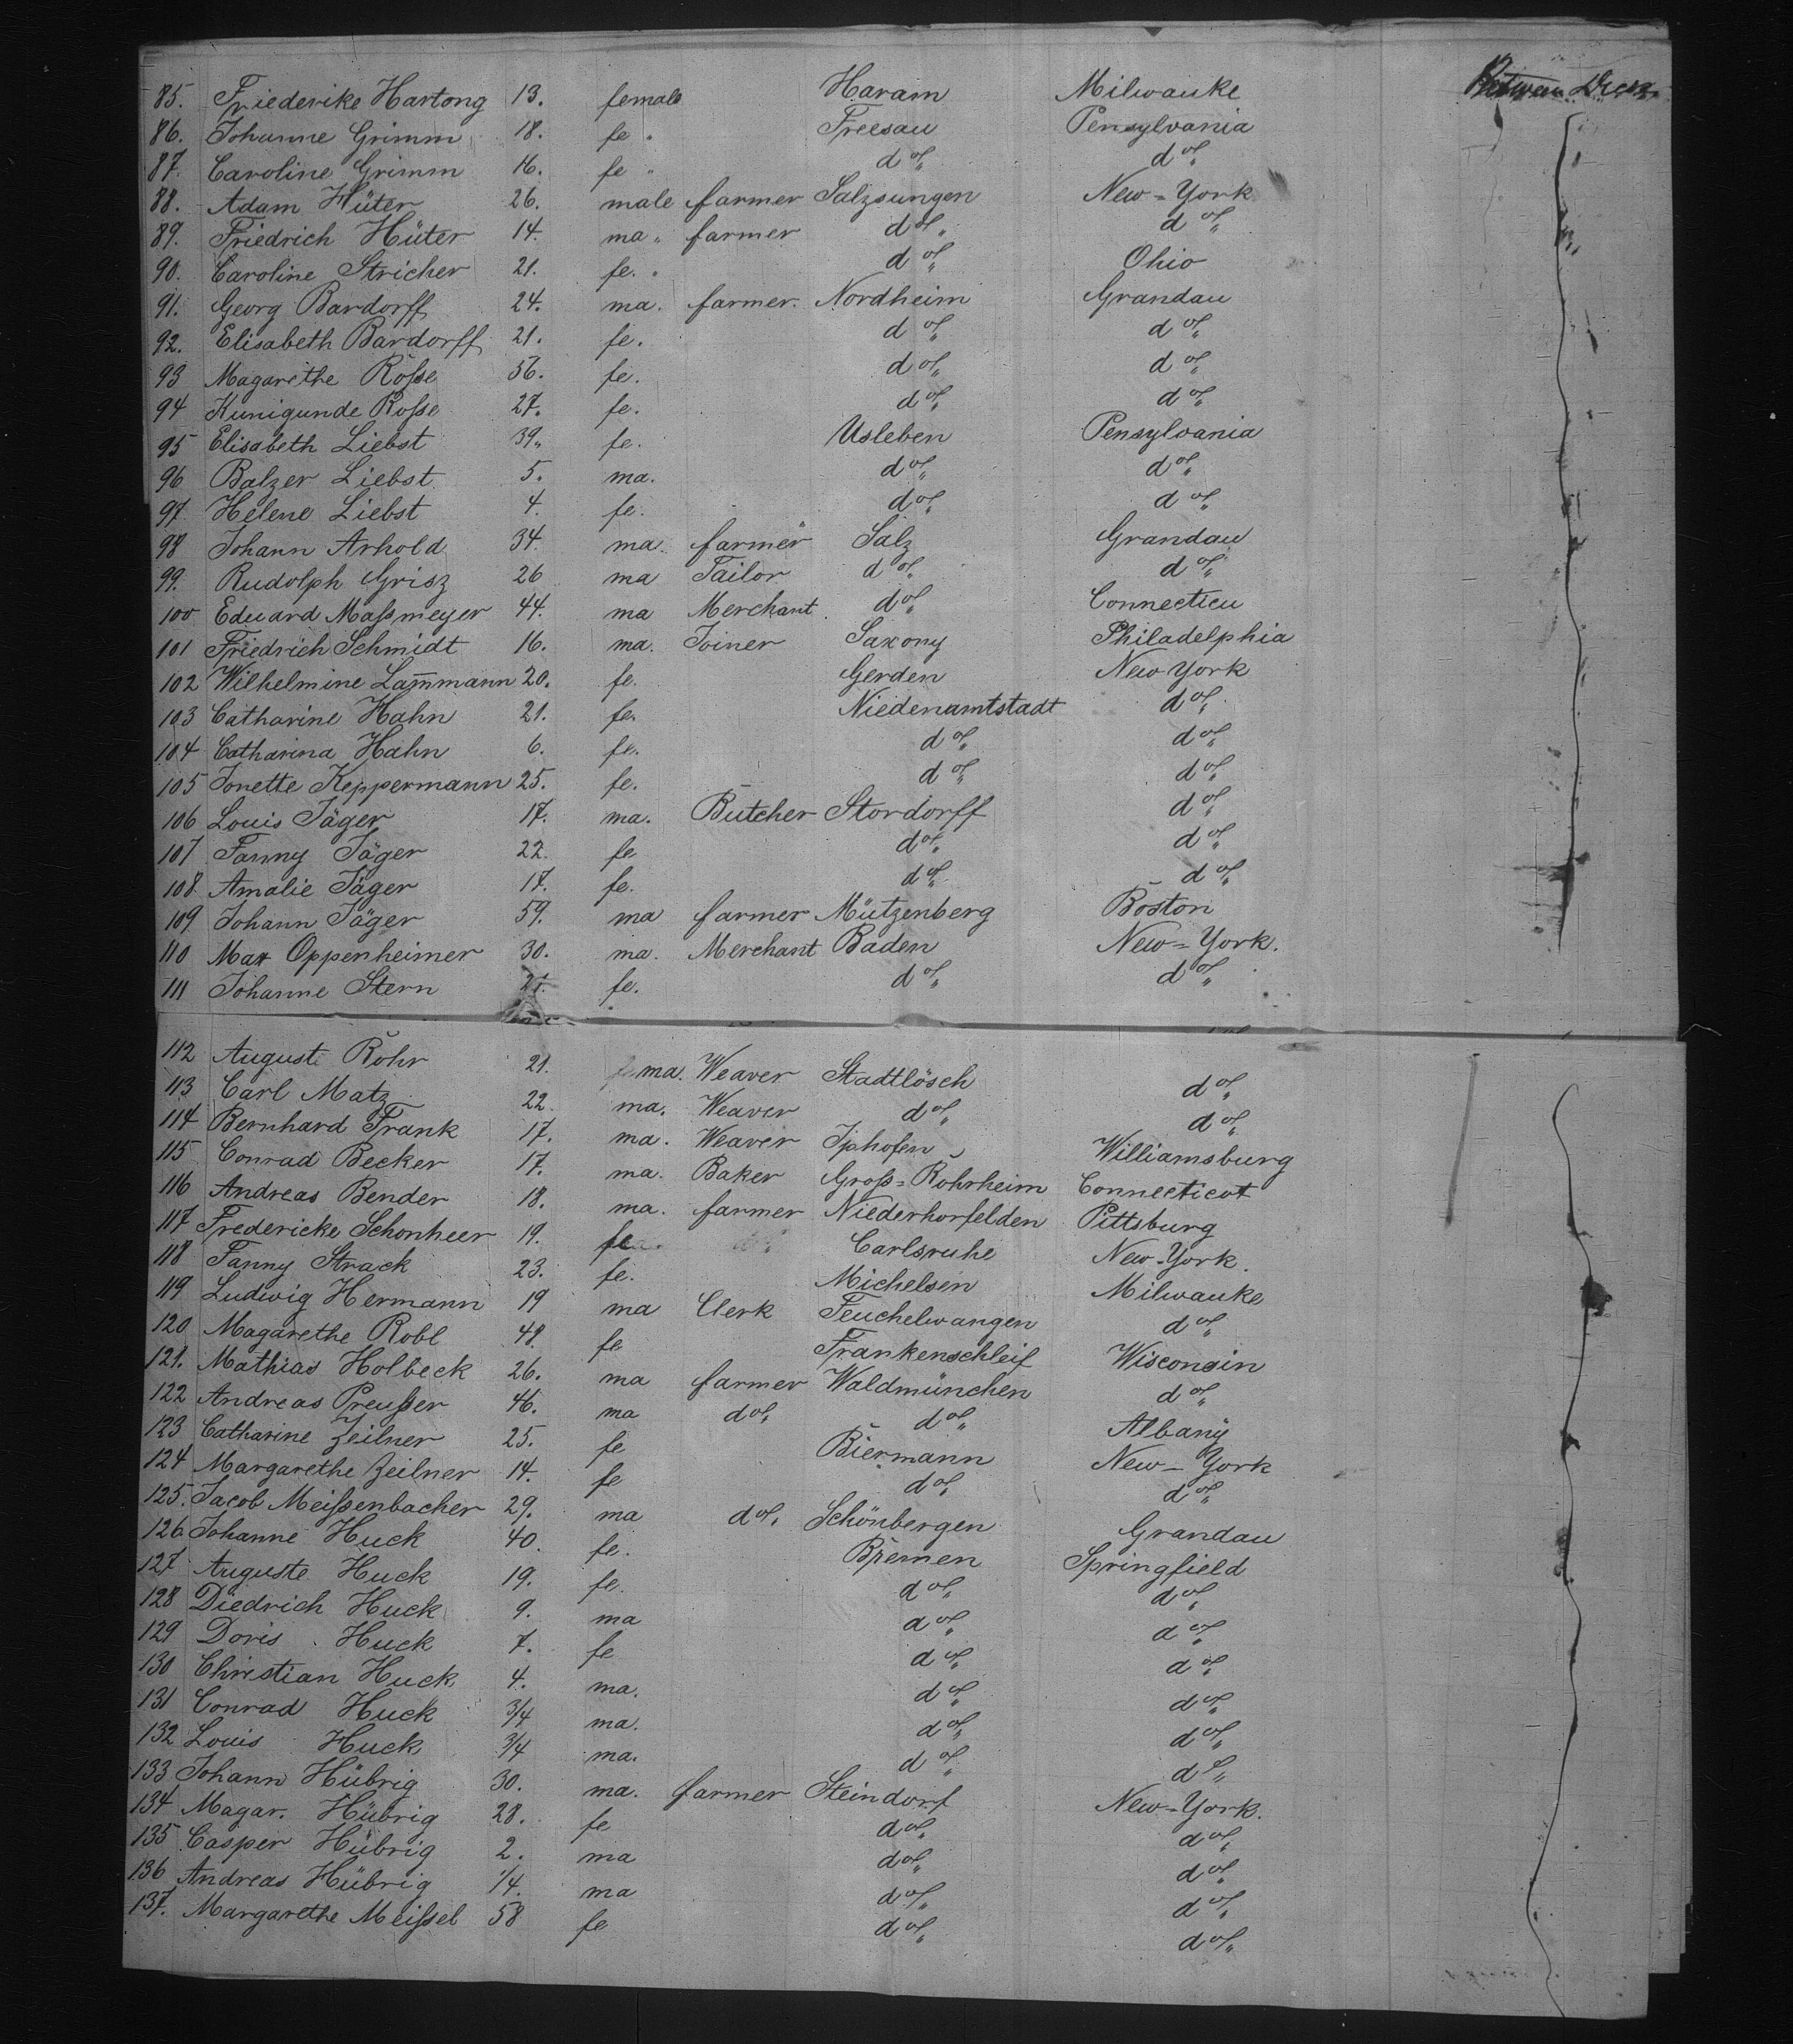 85. Friederike Hartong 13. female Haram Milwauke Between Decks
86. Johanne Grimm 18. fe " Freesau Pensylvania
87. Caroline Grimm 16. fe " do/" do/"
88. Adam Hüter 26. male farmer Salzsungen New-York
89. Friedrich Hüter 14. ma " farmer do/" do/"
90. Caroline Stricher 21. fe. " do/" Ohio
91. Georg Bardorff 24. ma. farmer. Nordheim Grandau
92. Elisabeth Bardorff 21. fe. do/" do/"
93 Magarethe Roſse 56. fe. do/" do/"
94 Kunigunde Roſse 27. fe. do/" do/"
95 Elisabeth Liebst 39" fe. Usleben Pensylvania
96 Balzer Liebst 5. ma. do/" do/"
97 Helene Liebst 4. fe. do/" do/"
98 Johann Arhold 34. ma. farmer Salz Grandau
99. Rudolph Grisz 26 ma Tailor do/" do/"
100 Eduard Maſsmeyer 44. ma Merchant do/" Connecticu
101 Friedrich Schmidt 16. ma. Joiner Saxony Philadelphia
102 Wilhelmine Lam̅mann 20. fe. Gerden New York
103 Catharine Hahn 21. fe. Niedenamtstadt do/"
104 Catharina Hahn 6. fe. do/" do/"
105 Jonette Keppermann 25. fe. do/" do/"
106 Louis Jäger 17. ma. Butcher Stordorff do/"
107 Fanny Jäger 22. fe do/" do/"
108 Amalie Jäger 17. fe. do/" do/"
109 Johann Jäger 59. ma farmer Mützenberg Boston
110 Max Oppenheimer 30. ma. Merchant Baden New-York.
111 Johanne Stern 21. fe. do/" do/"
112 August Rohr 21. ma. Weaver Stadtlösch do/"
113 Carl Matz 22. ma. Weaver do/" do/"
114 Bernhard Frank 17. ma. Weaver Iphofen Williamsburg
115 Conrad Becker 17. ma. Baker Groſs-Rohrheim Connecticut
116 Andreas Bender 18. ma. farmer Niederhorfelden Pittsburg
117 Fredericke Schonheer 19. fe Carlsruhe New-York.
118 Fanny Strack 23. fe. Michelsen Milwauke
119 Ludwig Hermann 19 ma Clerk Feuchelwangen do/"
120 Magarethe Robl 48. fe Frankenschleif Wisconsin
121. Mathias Holbeck 26. ma farmer Waldmünchen do/"
122 Andreas Preuſser 46. ma do/" do/" Albany
123 Catharine Zeilner 25. fe Biermann New-York
124 Margarethe Zeilner 14. fe do/" do/"
125. Jacob Meiſsenbacher 29. ma do/" Schönbergen Grandau
126 Johanne Huck 40. fe. Bremen Springfield
127 Auguste Huck 19. fe. do/" do/"
128 Diedrich Huck 9. ma do/" do/"
129 Doris Huck 7. fe do/" do/"
130 Christian Huck 4. ma. do/" do/"
131 Conrad Huck 3/4 ma. do/" do/"
132 Louis Huck 3/4 ma. do/" do/"
133 Johann Hübrig 30. ma. farmer Steindorf New-York.
134 Magar. Hübrig 28. fe do/" do/"
135 Casper Hübrig 2. ma do/" do/"
136 Andreas Hübrig 1/4. ma do/" do/"
137. Margarethe Meiſsel 58 fe do/" do/"